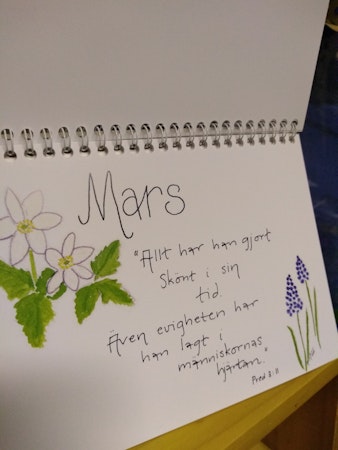 Mars
"Allt har han gjort
Skönt i sin
tid.
Även evigheten har
han lagt i
människornas
hjärtan."
Pred 3:11